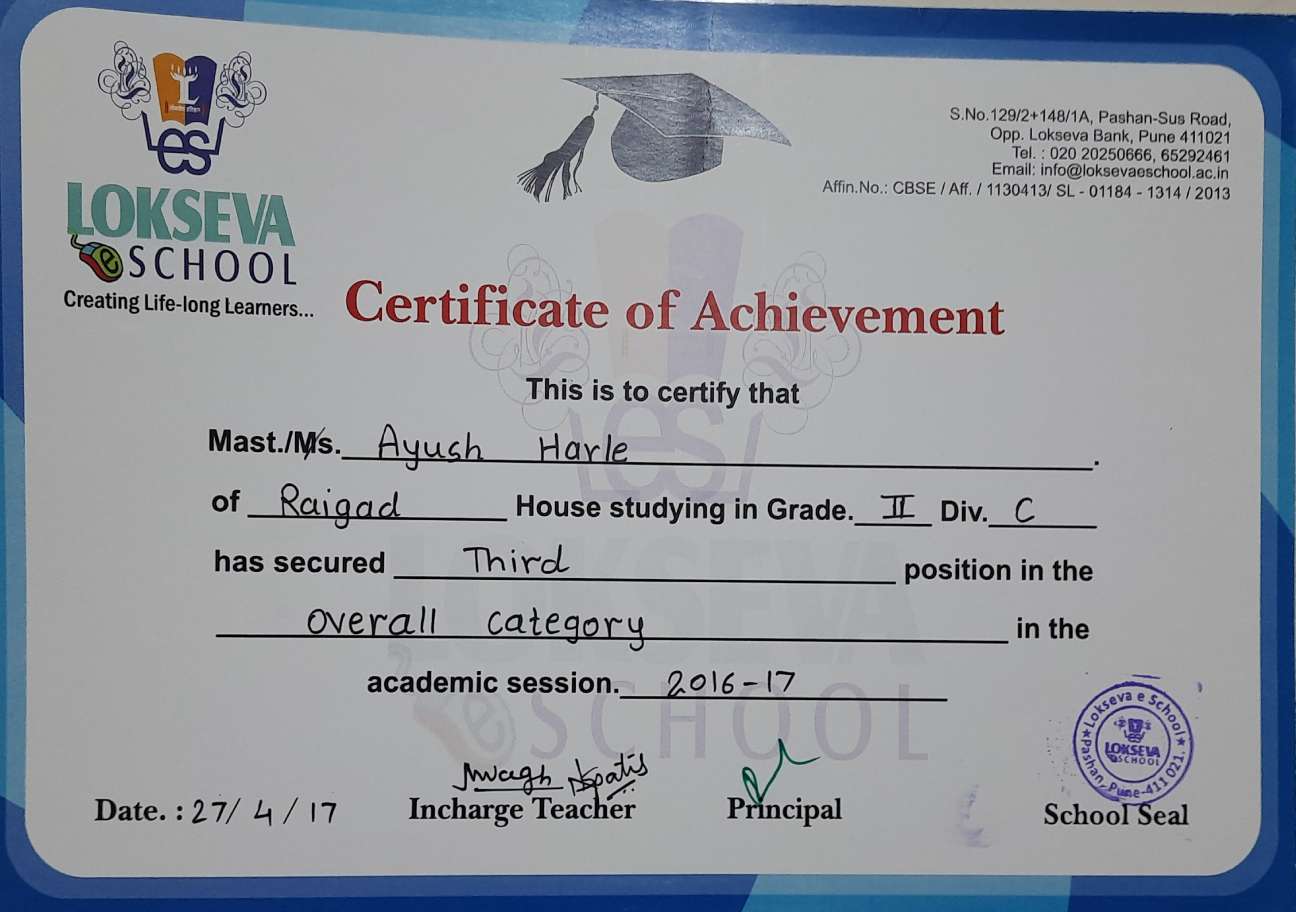 LOKSEVA
e SCHOOL
Creating Life-long Learners...
S.No.129/2+148/1A, Pashan-Sus Road,
Opp. Lokseva Bank, Pune 411021
Tel. : 020 20250666, 65292461
Email: info@loksevaeschool.ac.in
Affin.No.: CBSE / Aff. / 1130413/ SL - 01184 - 1314 / 2013
Certificate of Achievement
This is to certify that
Mast./Ms. Ayush Harle.
of Raigad House studying in Grade. II Div. C
has secured Third position in the
overall category in the
academic session. 2016-17
Date. : 27/4/17
Incharge Teacher
Principal
Lokseva e School
LOKSEVA
e SCHOOL
Pashan, Pune-411 021.
School Seal